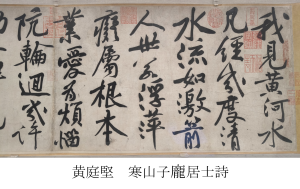 我見黃河水
凡經幾度清
水流如激箭
人世若浮萍
癡屬根本
業愛為煩惱
阬輪迴幾許
黃庭堅　寒山子龐居士詩